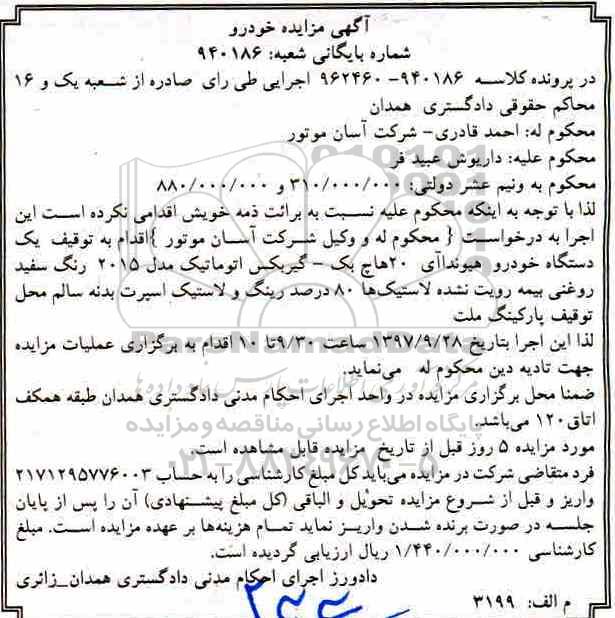 آگهی مزایده خودرو
شماره بایگانی شعبه: ۹۴۰۱۸۶
در پرونده کلاسه ۹۴۰۱۸۶- ۹۶۲۴۶۰ اجرایی طی رای صادره از شعبه یک و ۱۶
محاکم حقوقی دادگستری همدان
محکوم له: احمد قادری- شرکت آسان موتور
محکوم علیه: داریوش عبید فر
محکوم به ونیم عشر دولتی: ۳۱۰/۰۰۰/۰۰۰ و ۸۸۰/۰۰۰/۰۰۰
لذا با توجه به اینکه محکوم علیه نسبت به برائت ذمه خویش اقدامی نکرده است این
اجرا به درخواست { محکوم له و وکیل شرکت آسان موتور }اقدام به توقیف یک
دستگاه خودرو هیونداآی ۲۰هاچ بک – گیربکس اتوماتیک مدل ۲۰۱۵ رنگ سفید
روغنی بیمه رویت نشده لاستیک‌ها ۸۰ درصد رینگ و لاستیک اسپرت بدنه سالم محل
توقیف پارکینگ ملت
لذا این اجرا بتاریخ ۱۳۹۷/۹/۲۸ ساعت ۹/۳۰تا ۱۰ اقدام به برگزاری عملیات مزایده
جهت تادیه دین محکوم له می‌نماید.
ضمنا محل برگزاری مزایده در واحد اجرای احکام مدنی دادگستری همدان طبقه همکف
اتاق۱۲۰ می‌باشد.
مورد مزایده ۵ روز قبل از تاریخ مزایده قابل مشاهده است.
فرد متقاضی شرکت در مزایده می‌باید کل مبلغ کارشناسی را به حساب ۲۱۷۱۲۹۵۷۷۶۰۰۳
واریز و قبل از شروع مزایده تحویل و الباقی (کل مبلغ پیشنهادی) آن را پس از پایان
جلسه در صورت برنده شدن واریز نماید تمام هزینه‌ها بر عهده مزایده است. مبلغ
کارشناسی ۱/۴۴۰/۰۰۰/۰۰۰ ریال ارزیابی گردیده است.
دادورز اجرای احکام مدنی دادگستری همدان_زائری
م الف: ۳۱۹۹
ParsNamadData
پایگاه اطلاع رسانی مناقصه و مزایده
۰۲۱-۸۸۳۴۹۶۷۰-۵